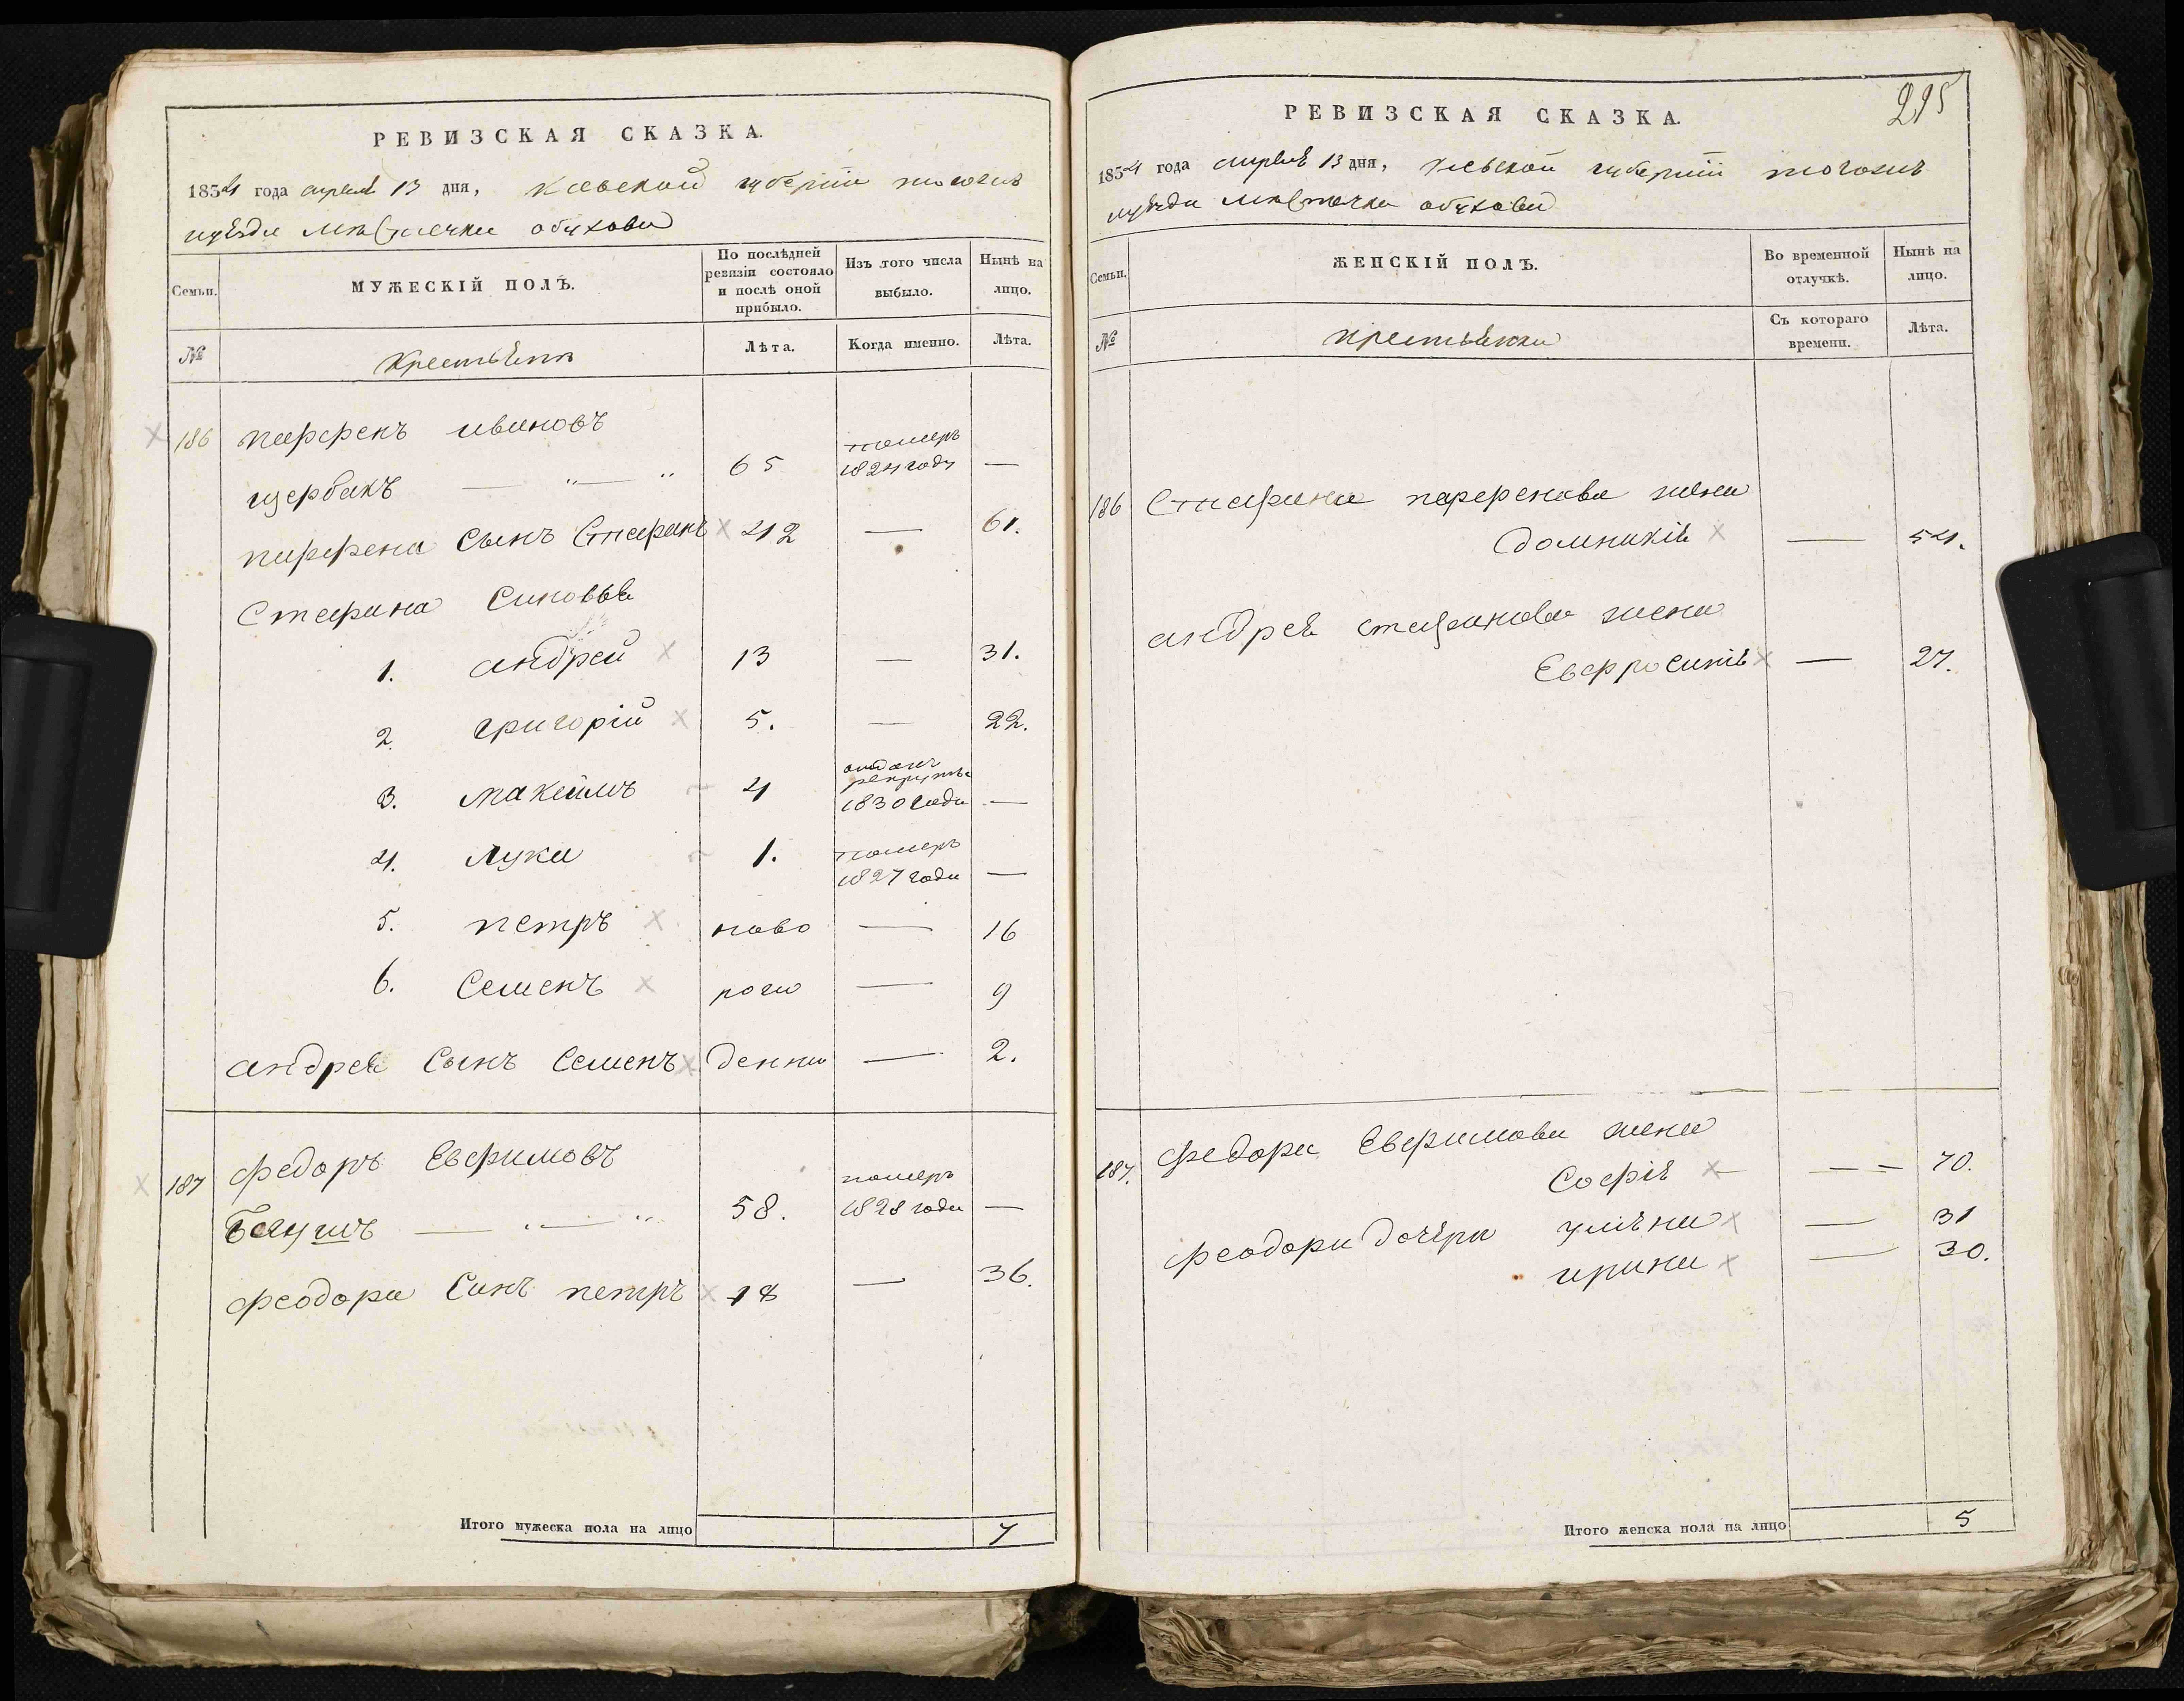 РЕВИЗСКАЯ СКАЗКА.
1834 года апреля 13 дня, Киевской губернии тогожъ
уѣзда мѣстечка обухова
Семьи.
МУЖЕСКІЙ ПОЛЪ.
По послѣдней ревизіи состояло и послѣ оной прибыло.
Изъ того числа выбыло.
Нынѣ на лицо.
№
Крестьяне
Лѣта.
Когда именно.
Лѣта.
186 парфенъ ивановъ
щербакъ — " — " 65 померъ 1824 году —
парфена Сынъ Стефанъ 42 — 61.
Стефана Синовья
1. андрей 13 — 31.
2. григорій 5. — 22.
3. максимъ 4 отданъ рекрутъ 1830 года —
4. лука 1. померъ 1827 года —
5. петръ ново — 16
6. Семенъ рож — 9
андрея Сынъ Семенъ денни — 2.
187 федоръ Евфимовъ
Багушъ — " — " 58. померъ 1828 года —
феодора Синъ петръ 18 — 36.
Итого мужеска пола на лицо 7
295
РЕВИЗСКАЯ СКАЗКА.
1834 года апреля 13 дня, Киевской губернии тогожъ
уѣзда мѣстечка обухова
Семьи.
ЖЕНСКІЙ ПОЛЪ.
Во временной отлучкѣ.
Нынѣ на лицо.
№
крестьянки
Съ котораго времени.
Лѣта.
186 Стефана парфенова жена
домникія — 54.
андрея стефанова жена
Евфросинія — 27.
187. федора Евфимова жена
Софія — — 70.
феодора дочери улияна — 31
ирина — 30.
Итого женска пола на лицо 5